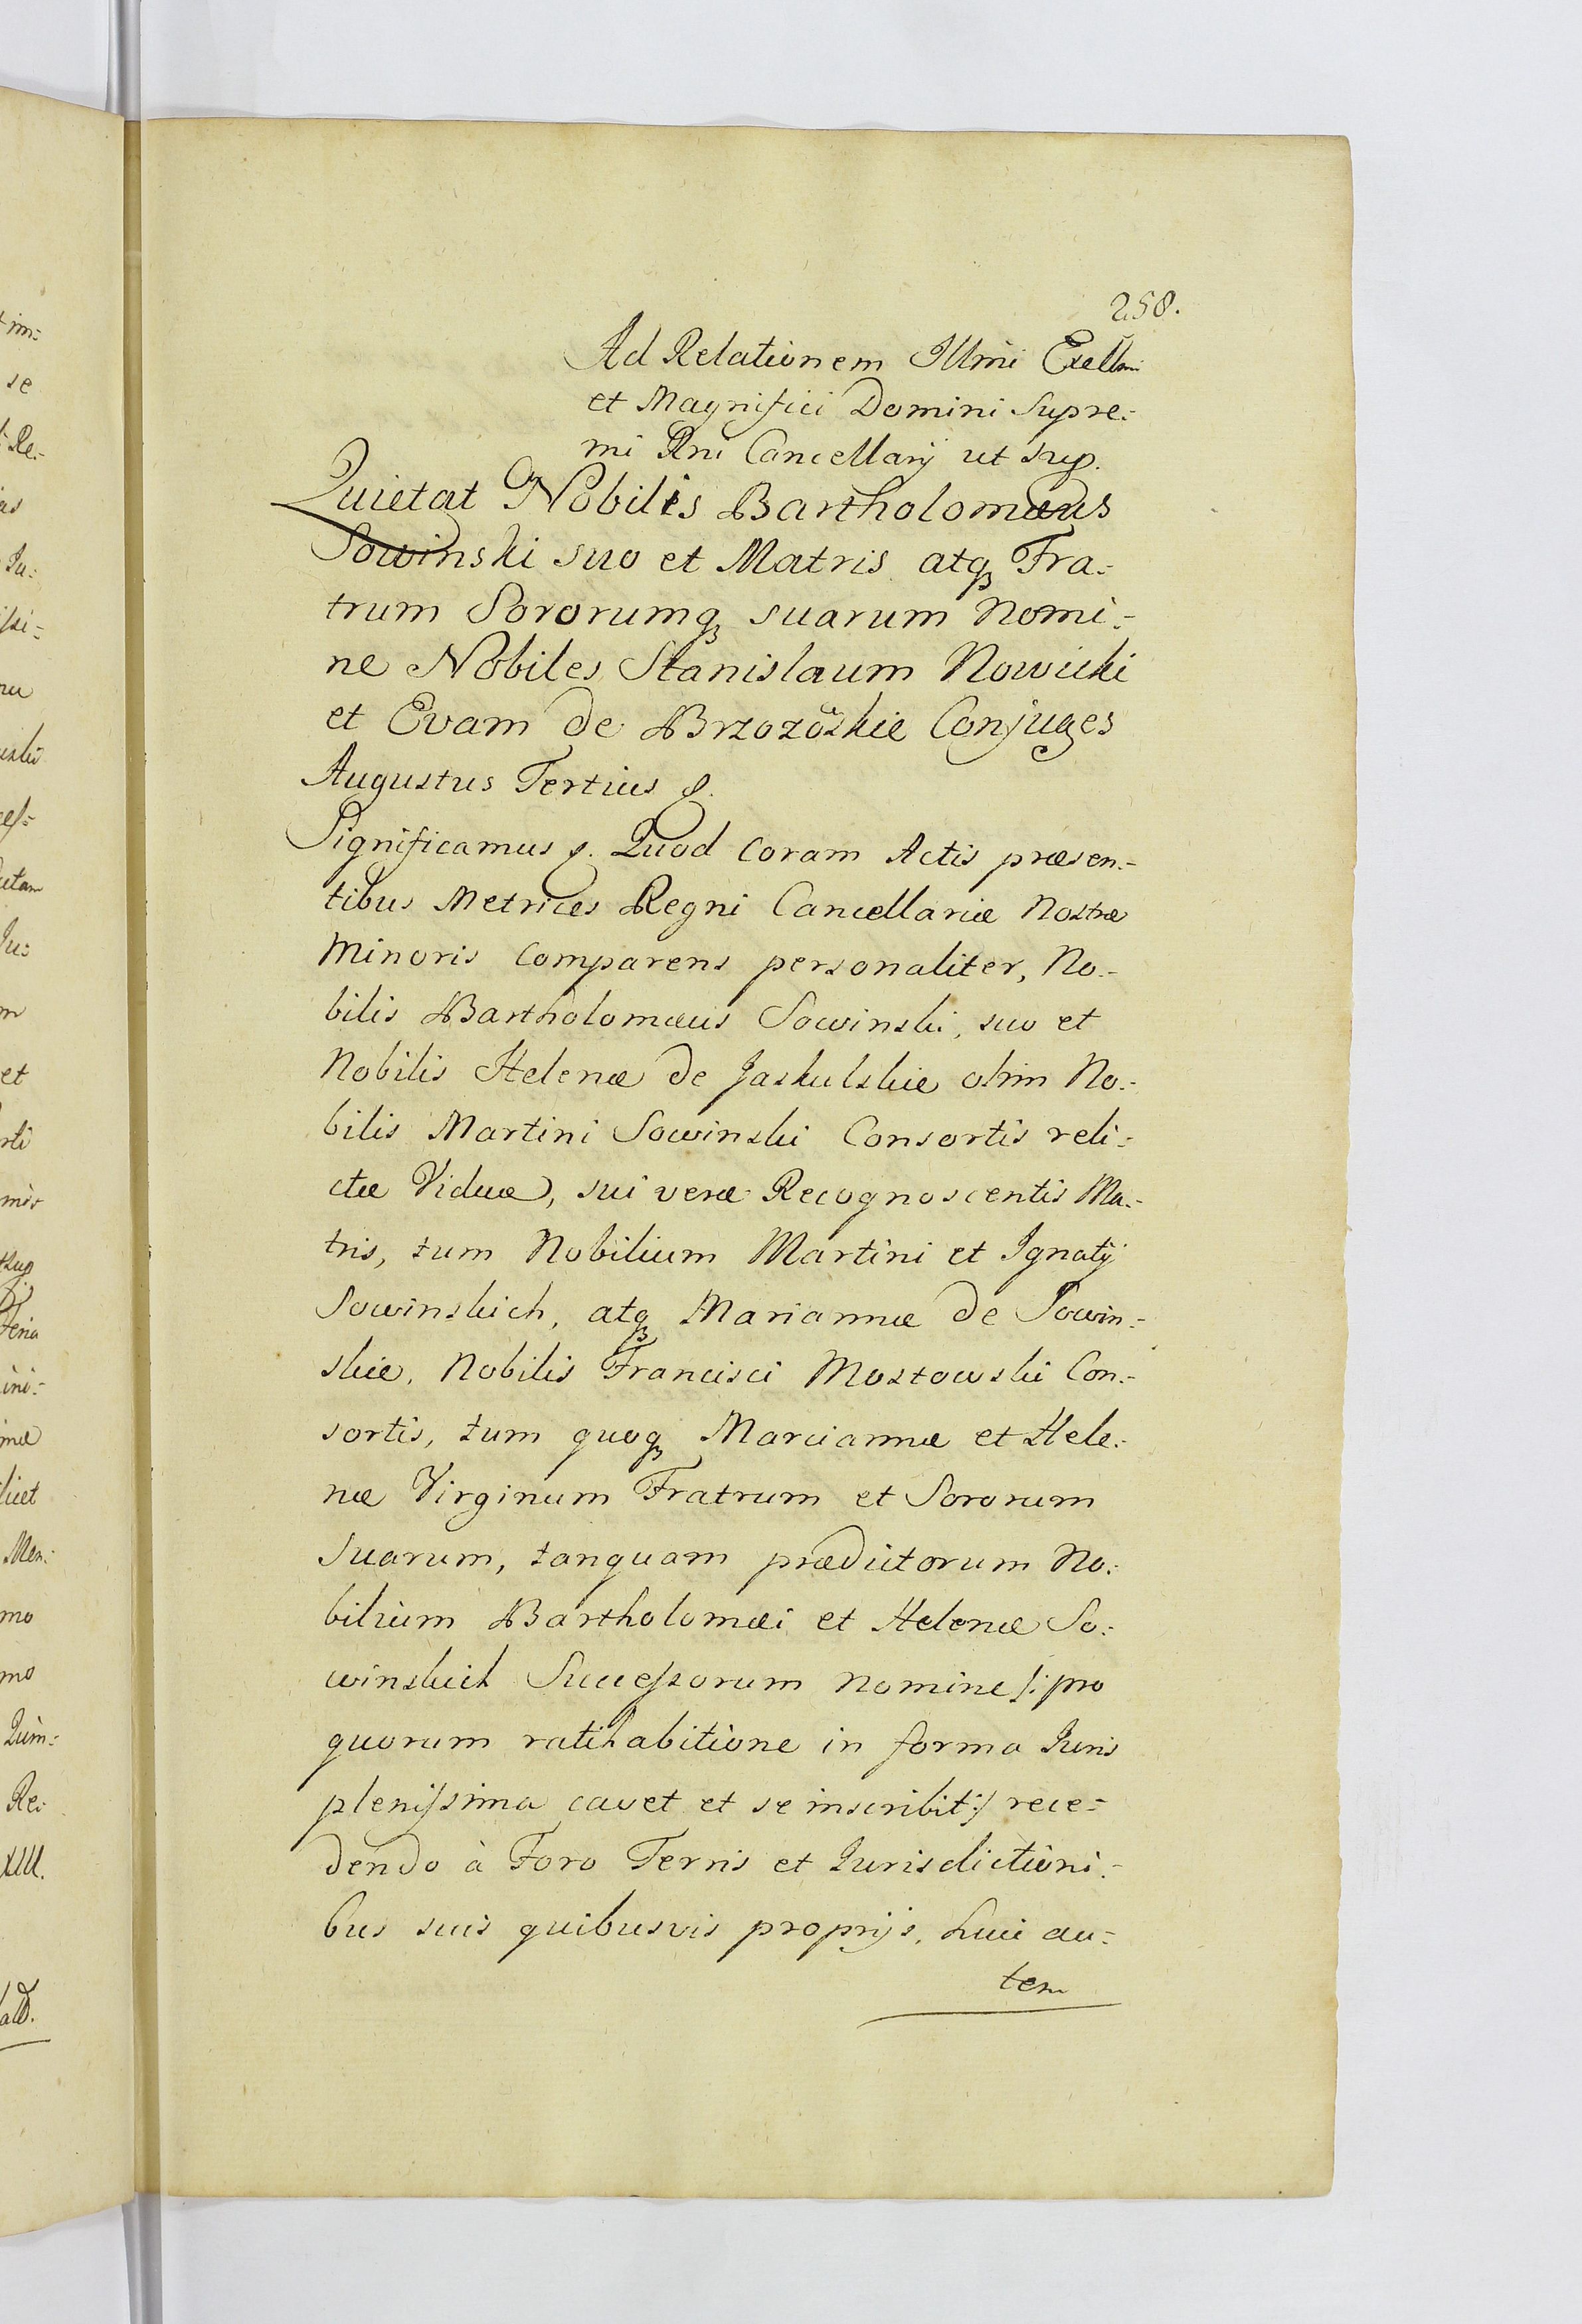 258.
Ad Relationem Illmi Exellmi
et Magnifici Domini Supre=
mi Rni Cancellarij ut sup.
Quietat Nobilis Bartholomæus
Sowinski suo et Matris atq₃ Fra=
trum Sororumq₃ suarum Nomi=
ne Nobiles Stanislaum Nowicki
et Evam de Brzozoskie Conjuges
Augustus Tertius &.
Significamus &. Quod coram Actis præsen=
tibus Metrices Regni Cancellariæ Nostræ
Minoris comparens personaliter, No=
bilis Bartholomæus Sowinski, suo et
Nobilis Helenæ de Jaskulskie olim No=
bilis Martini Sowinski Consortis reli=
ctæ Viduæ, sui veræ Recognoscentis Ma=
tris, tum Nobilium Martini et Ignatij
Sowinskich, atq₃ Mariannæ de Sowin=
skie, Nobilis Francisci Mostowski Con=
sortis, tum quoq₃ Marciannæ et Hele=
næ Virginum Fratrum et Sororum
suarum, tanquam prædictorum No=
bilium Bartholomæi et Helenæ So=
winskich Successorum nomine /: pro
quorum ratihabitione in forma Juris
plenissima cavet et se inscribit :/ rece=
dendo à Foro Terris et Jurisdictioni=
bus suis quibusvis proprijs, huic au=
tem